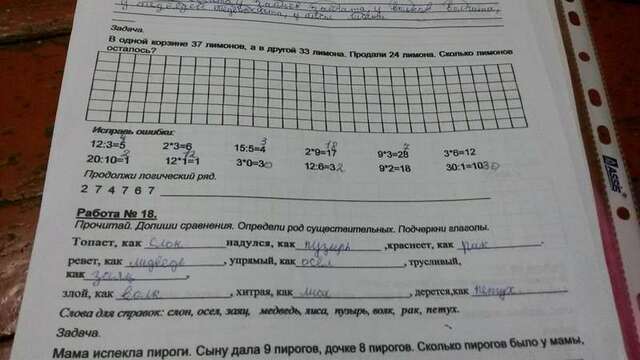 Задача.
В одной корзине 37 лимонов, а в другой 33 лимона. Продали 24 лимона. Сколько лимонов
осталось?
Исправь ошибки:
12:3=5 4 2*3=6 15:5=4 3 2*9=17 18 9*3=28 7 3*6=12
20:10=1 2 12*1=1 12 3*0=30 12:6=32 9*2=18 30:1=10
Продолжи логический ряд.
2 7 4 7 6 7
Работа № 18.
Прочитай. Допиши сравнения. Определи род существительных. Подчеркни глаголы.
Топает, как слон надулся, как пузырь, краснеет, как рак.
ревет, как медведь, упрямый, как осел, трусливый,
как заяц,
злой, как волк, хитрая, как лиса, дерется, как петух.
Слова для справок: слон, осел, заяц, медведь, лиса, пузырь, волк, рак, петух.
Задача.
Мама испекла пироги. Сыну дала 9 пирогов, дочке 8 пирогов. Сколько пирогов было у мамы,